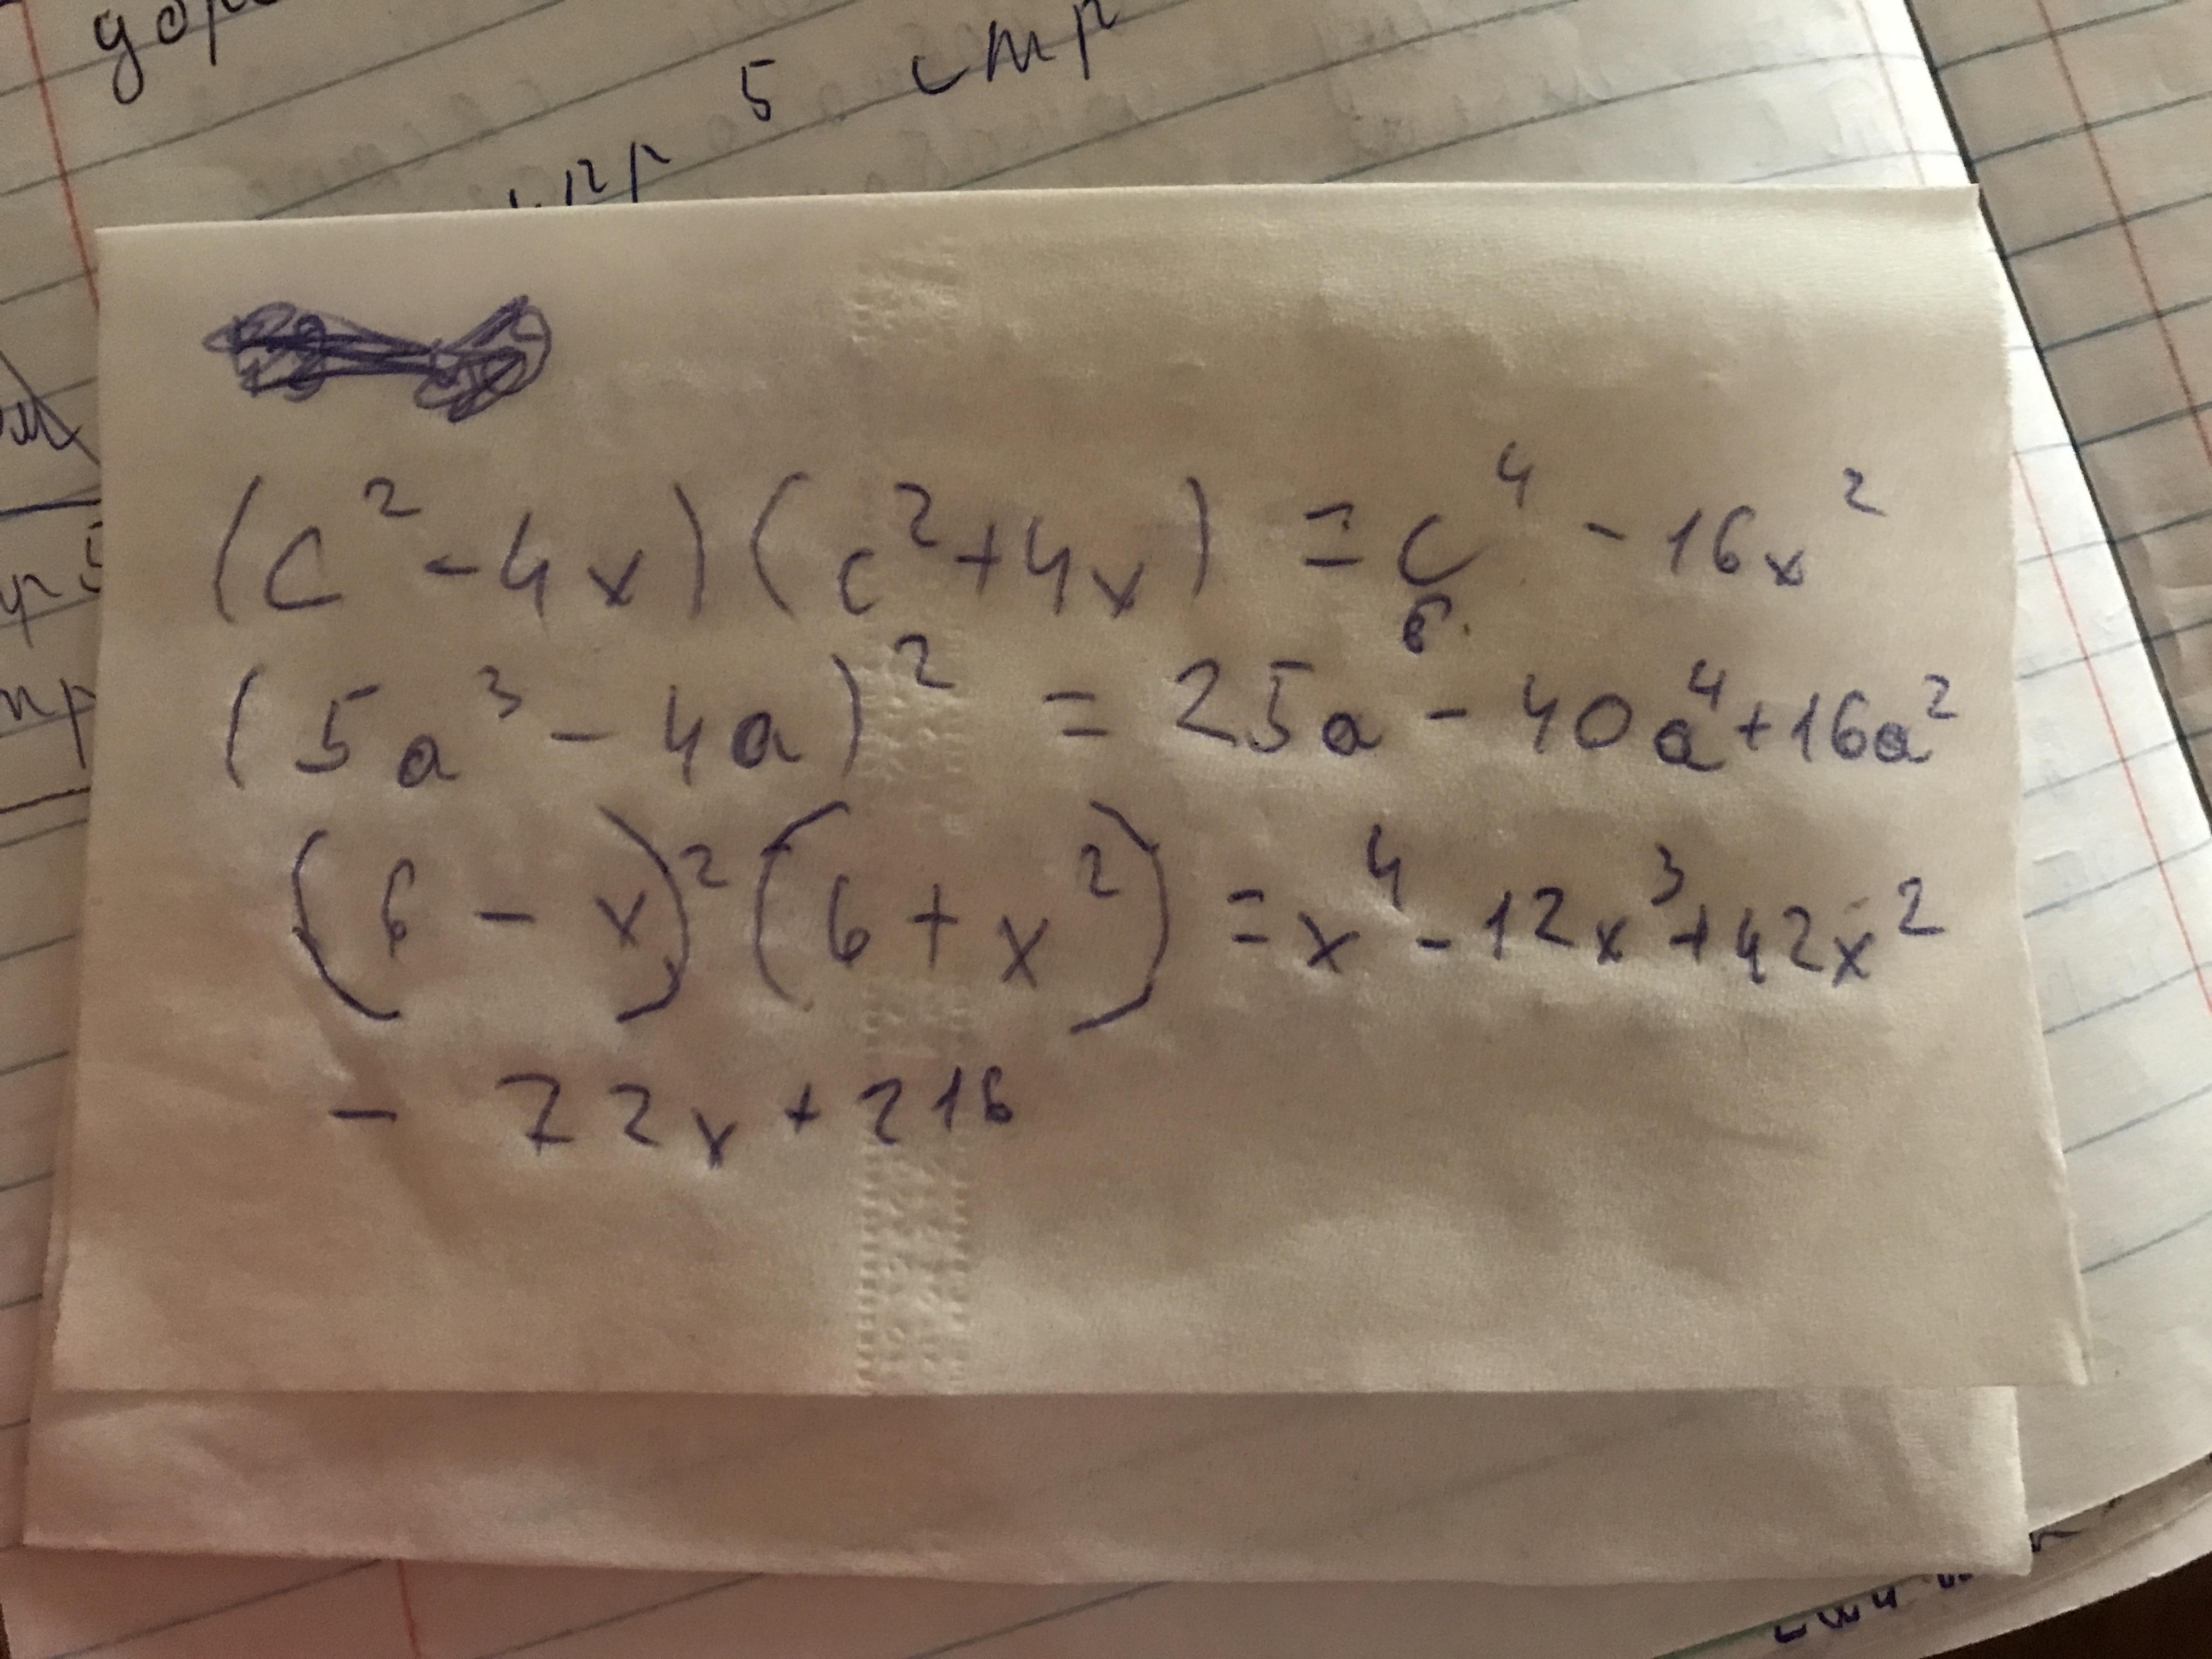 5 стр
(c² - 4x)(c² + 4x) = c⁴ - 16x²
(5a³ - 4a)² = 25a⁶ - 40a⁴ + 16a²
(6 - x)²(6 + x²) = x⁴ - 12x³ + 42x²
- 72x + 216